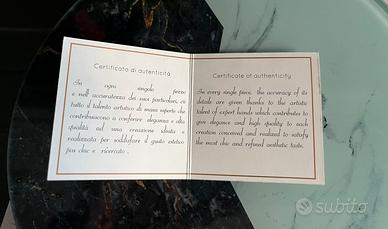 Certificato di autenticità
In ogni singolo pezzo
e nell' accuratezza dei suoi particolari, c'è
tutto il talento artistico di mani esperte che
contribuiscono a conferire eleganza e alta
qualità ad una creazione ideata e
realizzata per soddisfare il gusto estetico
più chic e ricercato.
Certificate of authenticity
In every single piece, the accuracy of its
details are given thanks to the artistic
talent of expert hands which contributes to
give elegance and high quality to each
creation conceived and realized to satisfy
the most chic and refined aesthetic taste.
subito